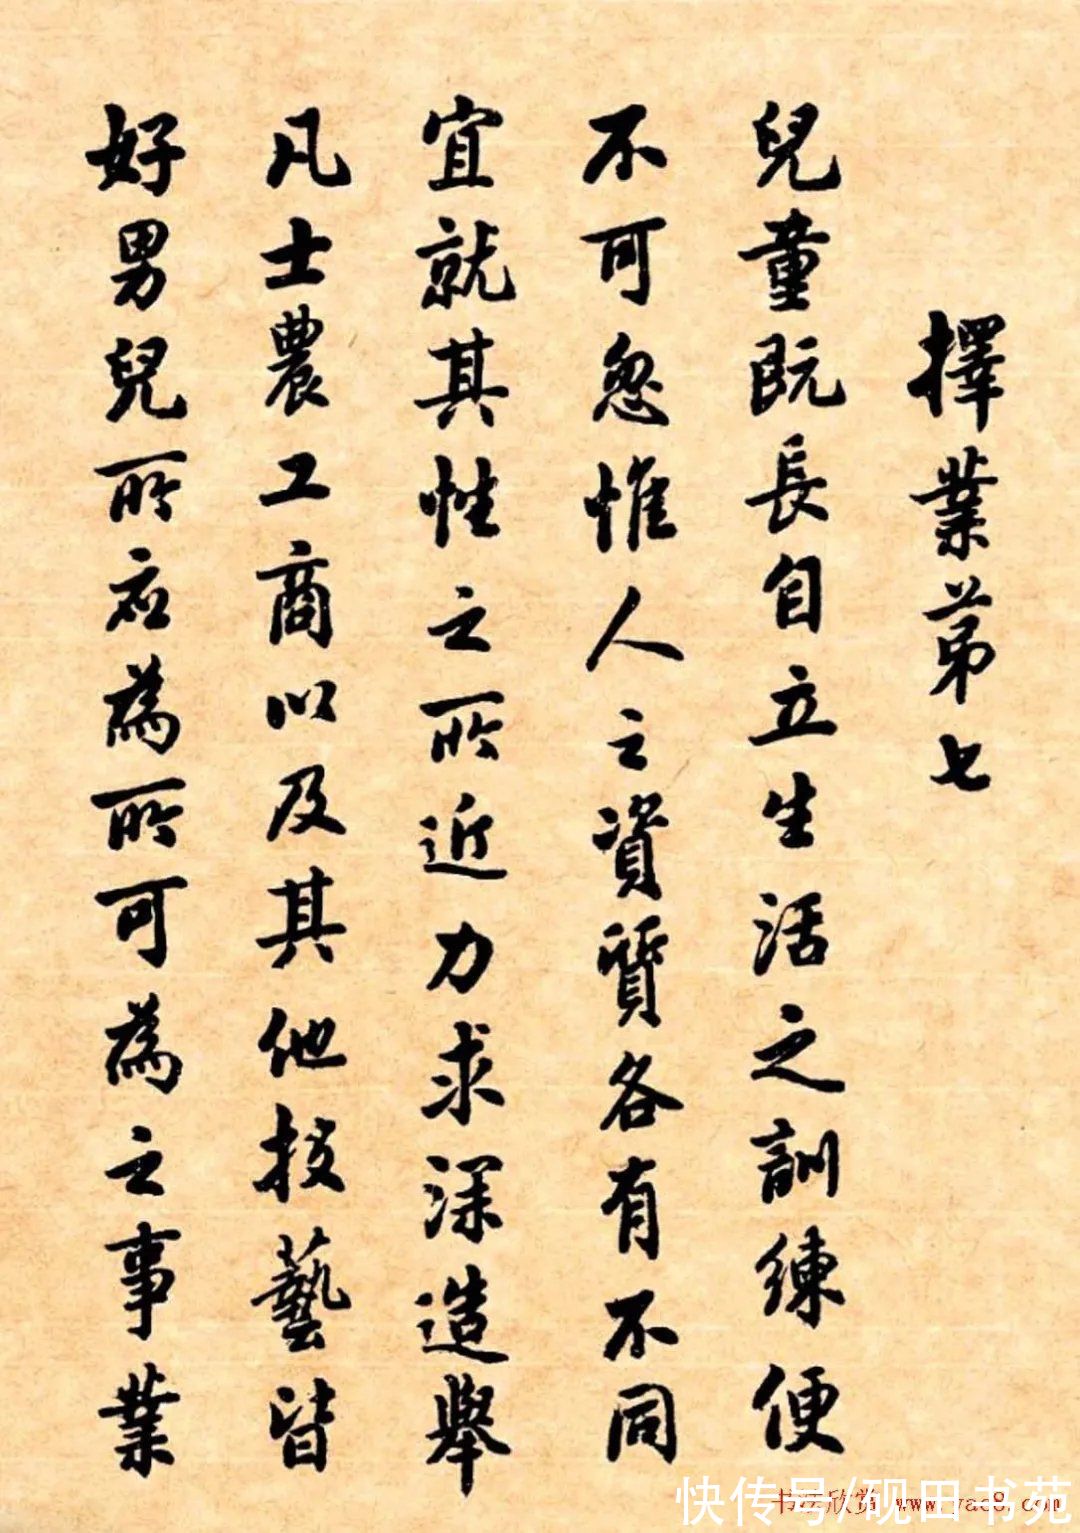 擇業第七
兒童既長自立生活之訓練便
不可忽惟人之資質各有不同
宜就其性之所近力求深造舉
凡士農工商以及其他技藝皆
好男兒所应為所可為之事業
快传号/砚田书苑
书法欣赏 www.yac8.com